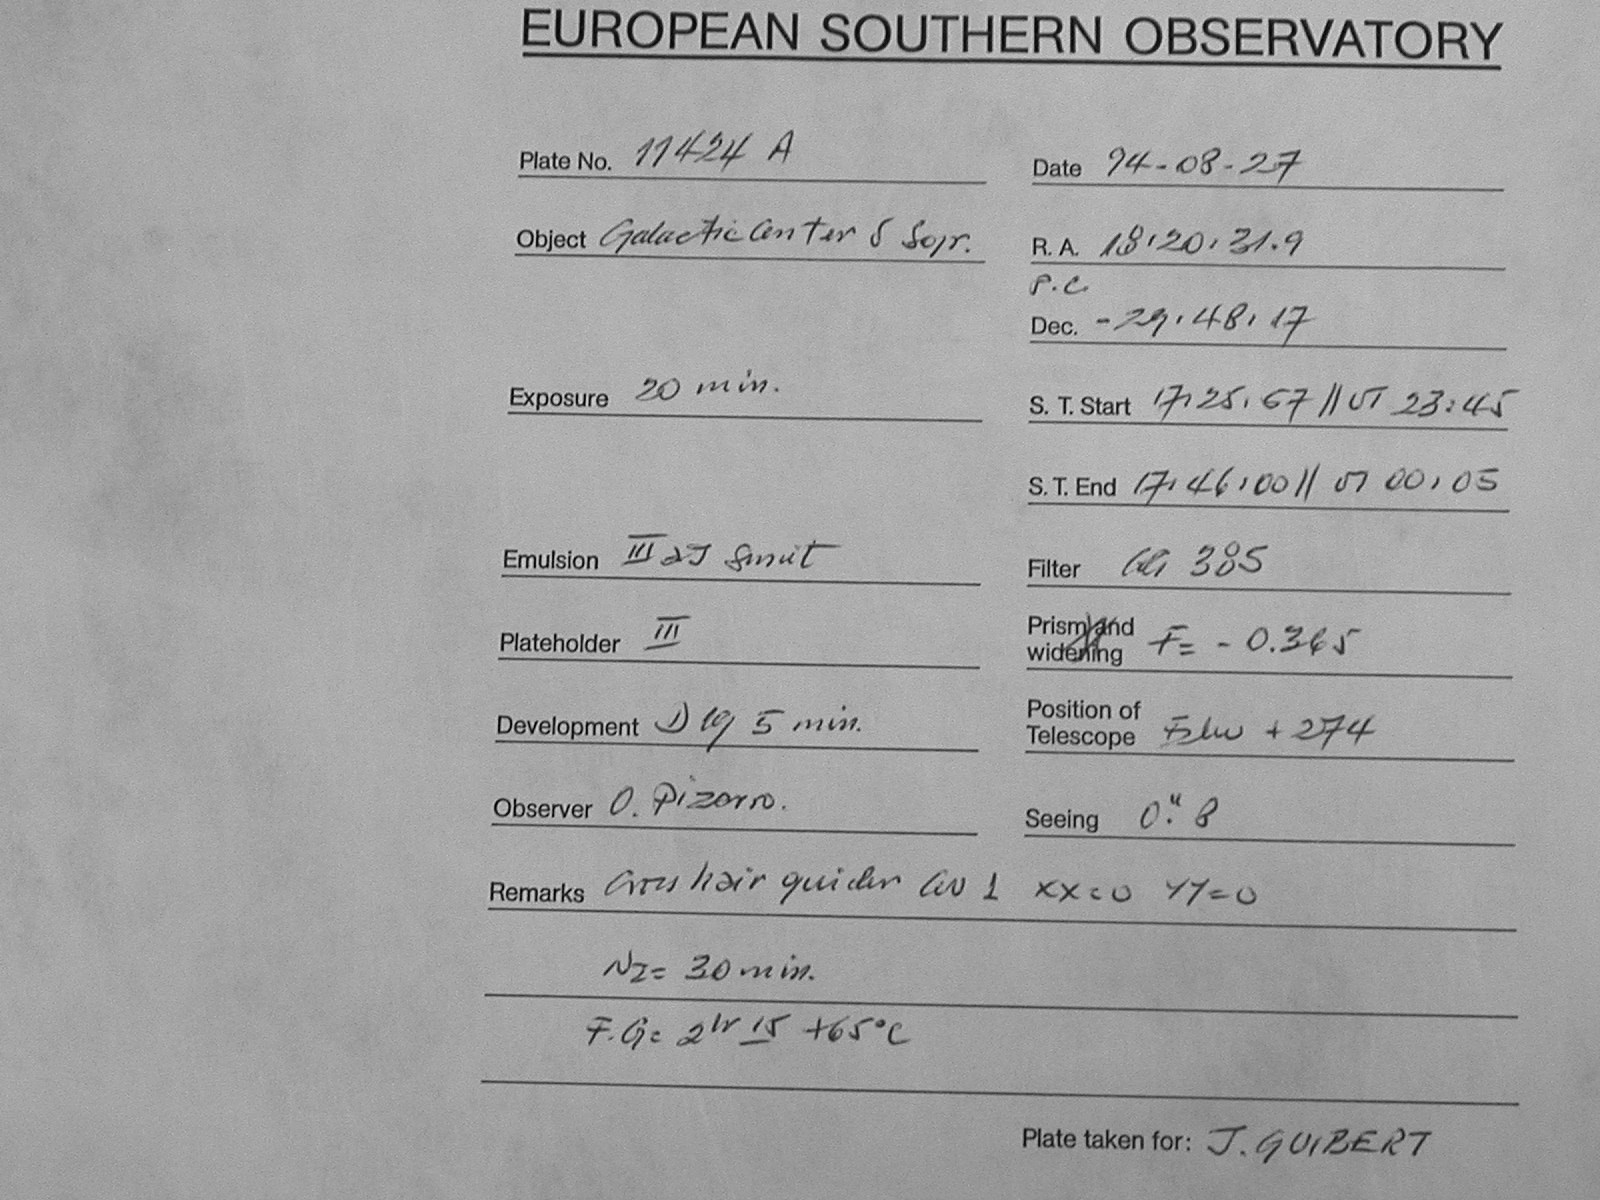 EUROPEAN SOUTHERN OBSERVATORY
Plate No. 11424 A
Date 94-08-27
Object Galactic Center
R. A. 18:20:31.9
P.C.
Dec. -29:48:17
Exposure 20 min.
S. T. Start 17:25:57 // UT 23:45
S. T. End 17:46:00 // UT 00:05
Emulsion III aJ
Filter GG 385
Plateholder III
Prism and
widening F= - 0.365
Development D 19 5 min.
Position of
Telescope + 274
Observer O. Pizarro.
Seeing 0."8
Remarks Cross hair guider 1 XX=0 YY=0
N2= 30 min.
F.G= 2hr 15 +65°C
Plate taken for: J. GUIBERT